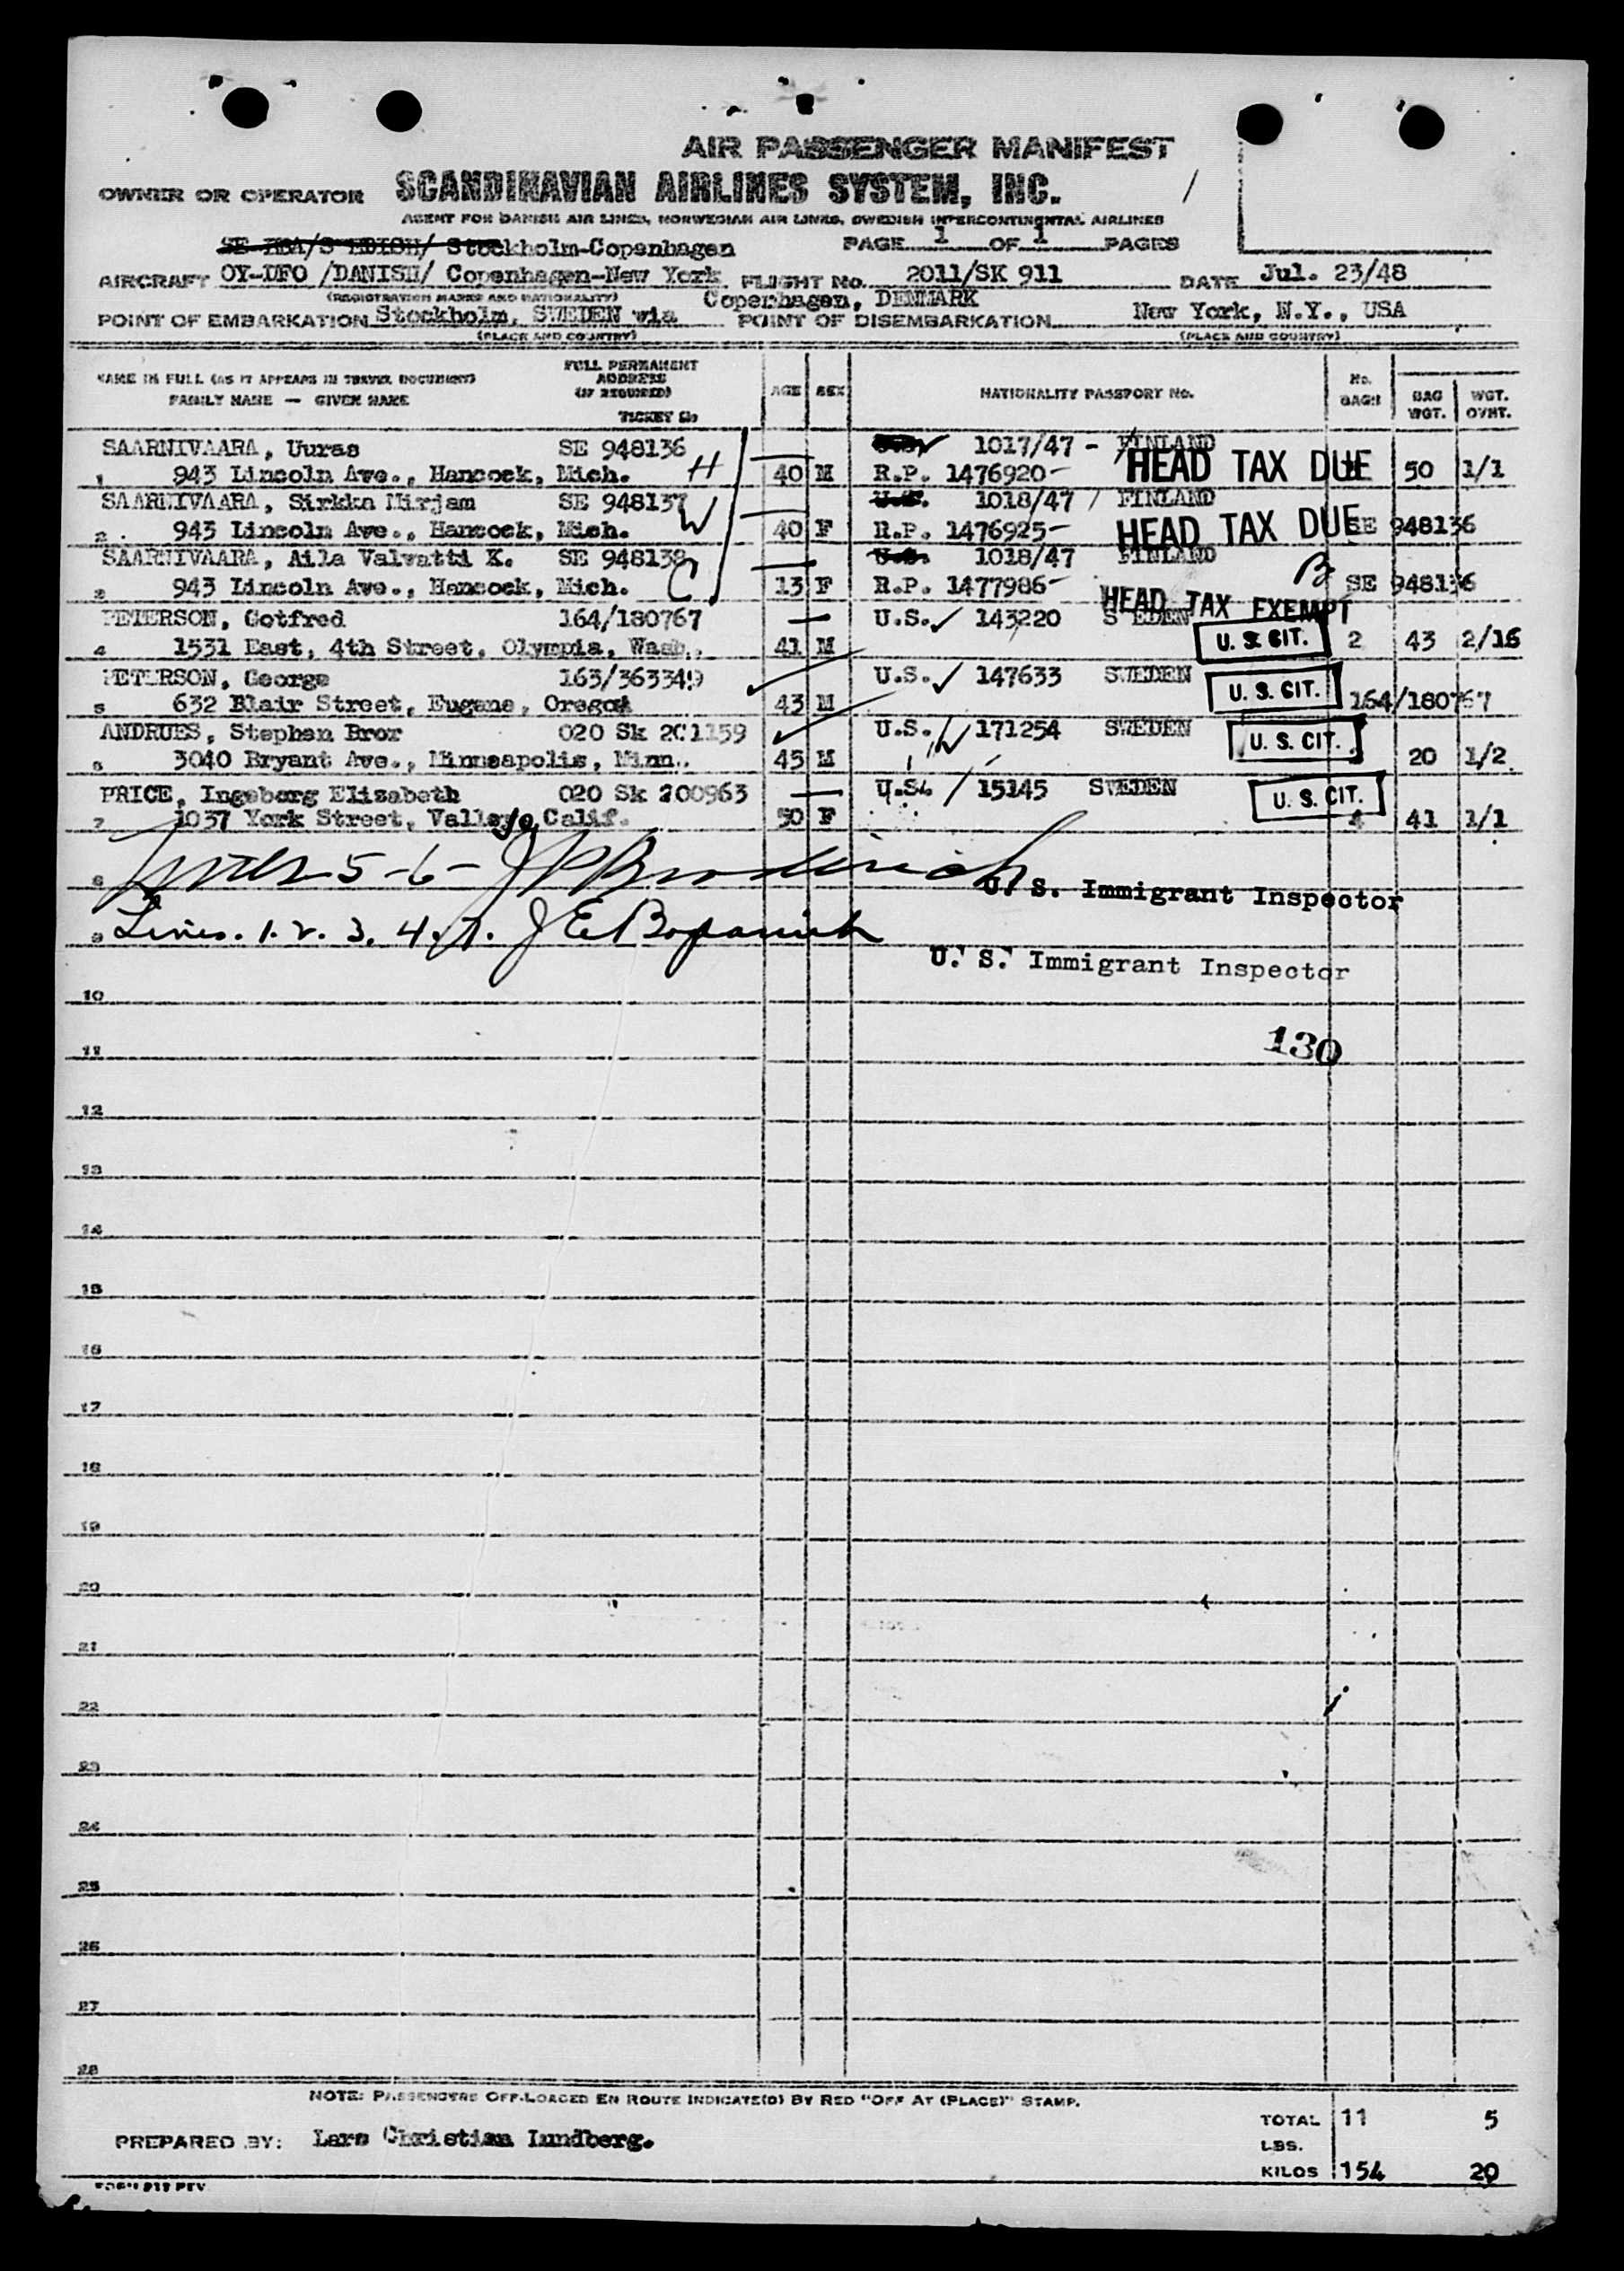 AIR PASSENGER MANIFEST
OWNER OR OPERATOR SCANDINAVIAN AIRLINES SYSTEM, INC.
AGENT FOR DANISH AIR LINES, NORWEGIAN AIR LINES, SWEDISH INTERCONTINENTAL AIRLINES
Stockholm-Copenhagen PAGE 1 OF 1 PAGES
AIRCRAFT OY-DFO /DANISH/ Copenhagen-New York FLIGHT No. 2011/SK 911 DATE Jul. 23/48
(REGISTRATION MARKS AND NATIONALITY) Copenhagen, DENMARK
POINT OF EMBARKATION Stockholm, SWEDEN via POINT OF DISEMBARKATION New York, N.Y., USA
(PLACE AND COUNTRY) (PLACE AND COUNTRY)
NAME IN FULL (AS IT APPEARS IN TRAVEL DOCUMENT) FULL PERMANENT ADDRESS (IF REQUIRED) AGE SEX NATIONALITY PASSPORT No. No. BAGS BAG WGT. WGT. OVHT.
FAMILY NAME — GIVEN NAME TICKET No
SAARNIVAARA, Uuras SE 948136 1017/47 - FINLAND
1 943 Lincoln Ave., Hancock, Mich. H 40 M R.P. 1476920- HEAD TAX DUE 50 1/1
SAARNIVAARA, Sirkka Mirjam SE 948137 U.S. 1018/47 / FINLAND
2 943 Lincoln Ave., Hancock, Mich. W 40 F R.P. 1476925- HEAD TAX DUE SE 948136
SAARNIVAARA, Aila Valvatti K. SE 948138 U.S. 1018/47 FINLAND
3 943 Lincoln Ave., Hancock, Mich. C 13 F R.P. 1477986- HEAD TAX EXEMPT SE 948136
PETERSON, Gotfred 164/180767 U.S. 143220 SWEDEN
4 1531 East, 4th Street, Olympia, Wash. 41 M U. S. CIT. 2 43 2/16
PETERSON, George 163/363349 U.S. 147633 SWEDEN
5 632 Blair Street, Eugene, Oregon 43 M U. S. CIT. 164/180767
ANDRUES, Stephen Bror 020 Sk 201159 U.S. 171254 SWEDEN
6 3040 Bryant Ave., Minneapolis, Minn. 45 M U. S. CIT. 20 1/2
PRICE, Ingeborg Elizabeth 020 Sk 200963 U.S. / 15145 SWEDEN
7 1037 York Street, Vallejo, Calif. 50 F U. S. CIT. 4 41 1/1
8 5-6- U. S. Immigrant Inspector
9 Lines. 1. 2. 3. 4. 7. J E
U. S. Immigrant Inspector
10
130
11
12
13
14
15
16
17
18
19
20
21
22
23
24
25
26
27
28
NOTE: PASSENGERS OFF-LOADED EN ROUTE INDICATE(D) BY RED "OFF AT (PLACE)" STAMP.
TOTAL 11 5
PREPARED BY: Lars Christian Lundberg.
LBS.
KILOS 154 20